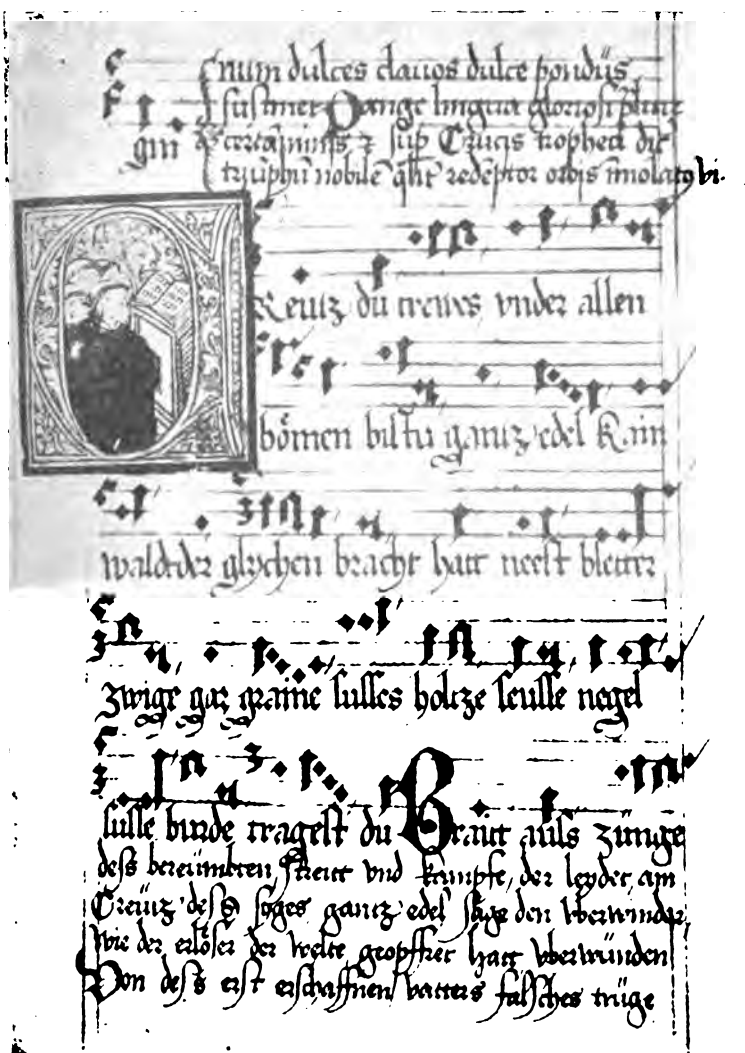 num dulces clauos dulce pondus
sustinet Pange lingua gloriosi
gni certaminis sup Crucis tropheo dic
triūphū nobile redēptor orbis īmolat9 vi.
Kreutz du trewes vnder allen
bömen bistu gantz edel kain
waldt der glychen bracht hatt neest bletter
zwige gar graine susses holtze seusse negel
susse burde tragest du Braitt auss zunge
dess bereümbten streitt vnd kampfe, der leyder am
Creütz dess soges gantz edel sage den vberwinder
wie der erlöser der welte geopffret hatt vberwunden
Von dess erst erschaffnen vatters falsches trüge